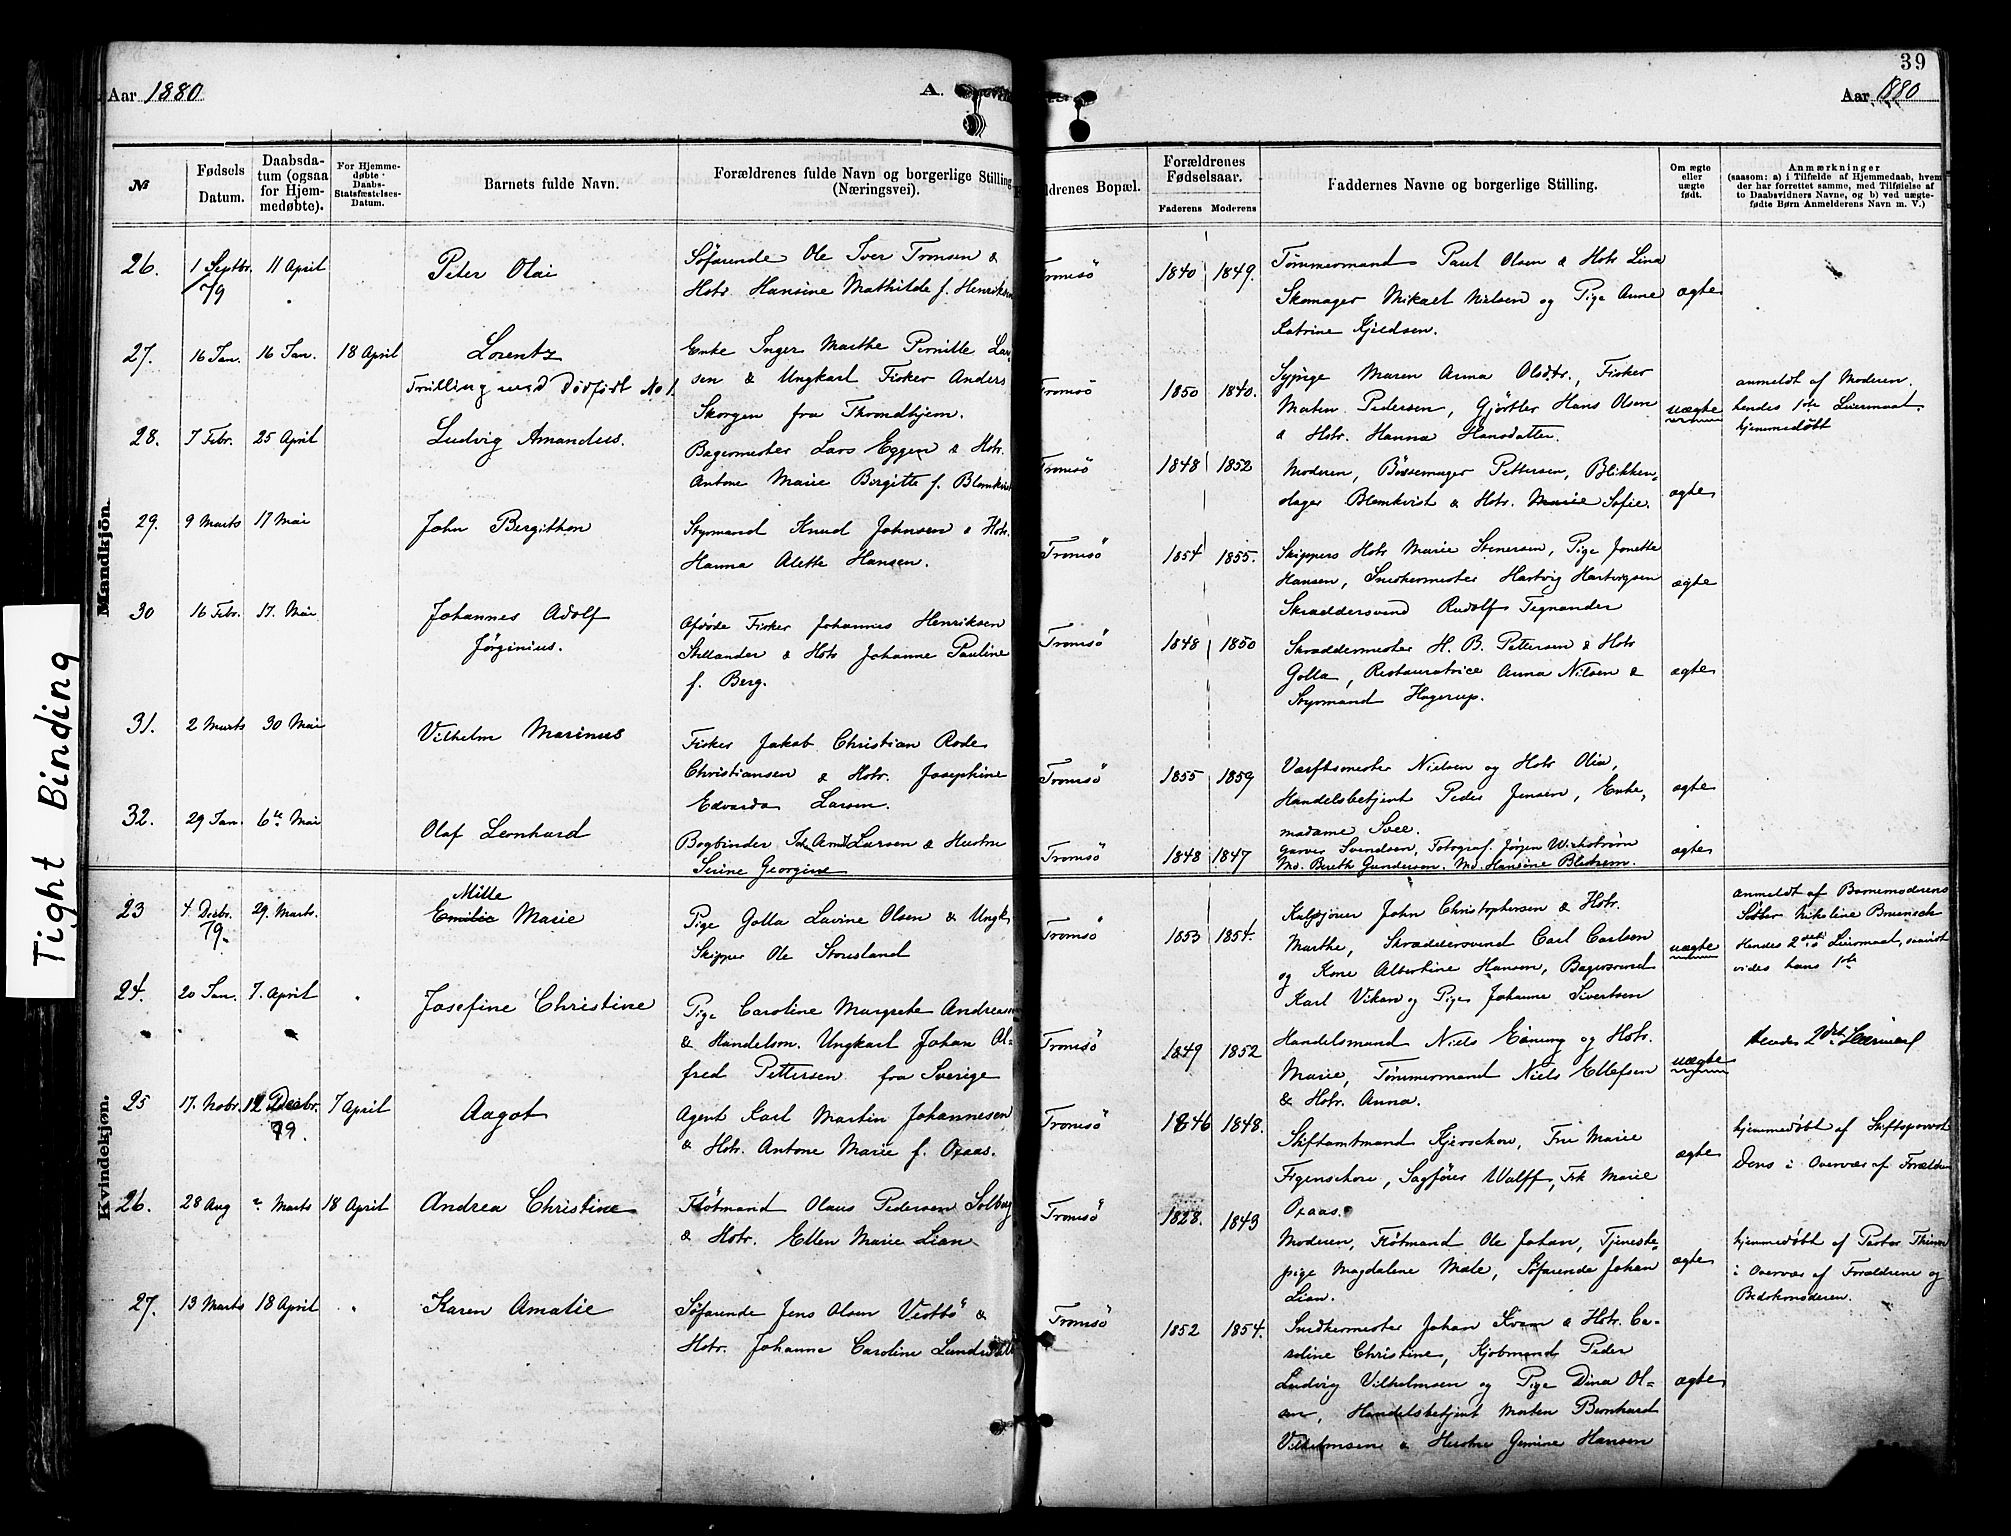 39
Aar 1880 A.
Aar 1880
Tight Binding
№
Fødsels Datum.
Daabsdatum (ogsaa for Hjemmedøbte).
For Hjemmedøbte Daabs-Statsfæstelses-Datum.
Barnets fulde Navn.
Forældrenes fulde Navn og borgerlige Stilling (Næringsvei).
ldrenes Bopæl.
Forældrenes Fødselsaar.
Faderens Moderens
Faddernes Navne og borgerlige Stilling.
Om ægte eller uægte født.
Anmærkninger
(saasom: a) i Tilfælde af Hjemmedaab, hvem
der har forrettet samme, med Tilføielse af
to Daabsvidners Navne, og b) ved uægte-
fødte Børn Anmelderens Navn m. V.)
Mandkjøn.
26. 1 Septbr. 79 11 April
Peter Olai
Søfarende Ole Iver Tronsen &
Hstr. Hansine Mathilde f. Henriksen
Tromsö 1840 1849.
Tømmermand Paul Olsen & Hstr Lina
Skomager Mikael Nielsen og Pige Anne
Katrine Kjeldsen.
ægte
27. 16 Jan. 16 Jan. 18 April
Lorentz
Trilling med Dødfødt No 1.
Enke Inger Marthe Pernille Lar-
sen & Ungkarl Fisker Anders
Skorgen fra Throndhjem.
Tromsö 1850 1840.
Sypige Maren Anna Olsdtr., Fisker
Maten Pedersen, Gjørtler Hans Olsen
& Hstr. Hanna Hansdatter.
uægte
anmeldt af Moderen.
hendes 1ste Leiermaal.
hjemmedøbt
28. 7 Febr. 25 April
Ludvig Amandus.
Bagermester Lars Eggen & Hstr.
Antone Marie Birgitte f. Blomkvist
Tromsö 1848 1852
Moderen, Bøssemager Pettersen, Blikken-
slager Blomkvist & Hstr. Marie Sofie.
ægte
29. 9 Marts 17 Mai
John Bergithon
Styrmand Knud Johnsen & Hstr.
Hanna Alette Hansen.
Tromsö 1854 1855.
Skippers Hstr Marie Stenersen, Pige Jonette
Hansen, Snedkermester Hartvig Hartvigsen
Skræddersvend Rudolf Tegnander
ægte
30 16 Febr. 17. Mai
Johannes Adolf
Jørginius.
Afdøde Fisker Johannes Henriksen
Stellander & Hstr Johanne Pauline
f. Berg.
Tromsö 1848 1850
Skræddermester H. B. Pettersen & Hstr
Golla, Restauratrice Anna Nilsen &
Styrmand Hagerup.
ægte
31. 2 Marts 30 Mai
Vilhelm Marinus
Fisker Jakob Christian Rode
Christiansen & Hstr. Josephine
Edvarda Larsen.
Tromsö 1855 1859
Værftsmester Nielsen og Hstr Olia,
Handelsbetjent Peder Jensen, Enke-
madame Svee.
ægte
32. 29 Jan. 6te Mai
Olaf Leonhard
Bogbinder Larsen & Hustru
Serine Georgine
Tromsö 1848 1847
Garver Svendsen, Fotograf Jørgen Wickstrøm
Md. Bereth Gundersen. Md. Hansine Blekrem.
ægte
Kvindekjøn.
23 4. Decbr. 79. 29. Marts.
Mille
Emilie Marie
Pige Golla Lavine Olsen & Ungk.
Skipper Ole Storsland
Tromsö 1853 1854.
John Christophersen & Hstr.
Marthe, Skræddersvend Carl Carlsen
og Kone Albertine Hansen, Bagersvend
Karl Vikan og Pige Johanne Sivertsen
uægte
anmeldt af Barnemoderens
Søster Nikoline Bruenisch
Hendes 2det Leiermaal, saavidt
vides hans 1ste
24. 20 Jan. 7. April
Josefine Christine
Pige Caroline Margrete Andreasen
& Handelsm. Ungkarl Johan Al-
fred Pettersen fra Sverige
Tromsö 1849 1852
Handelsmand Niels Ebning og Hstr.
Marie, Tømmermand Niels Ellefsen
& Hstr. Anna.
uægte
Hendes 2det Leiermaal
25 17. Nobr. 12 Decbr. 79. 7 April
Aagot
Agent Karl Martin Johannesen
& Hstr. Antone Marie f. Oxaas.
Tromsö 1846 1848.
Stiftamtmand Kjerschow, Fru Marie
Figenschou, Sagfører Wulff, Frk Marie
Oxaas.
ægte
hjemmedøbt af Stiftsprovst
Dens i Overvær af Forældre
26. 28 Aug Marts 18 April
Andrea Christine
Flötmand Olaus Pedersen Solberg
& Hstr. Ellen Marie Lian
Tromsö 1828. 1843
Moderen, Flötmand Ole Johan, Tjeneste-
pige Magdalene Mæle, Søfarende Johan
Lian.
ægte
hjemmedøbt af Pastor
i Overvær af Forældrene og
Bedstemoderen.
27. 13 Marts 18 April
Karen Amalie
Søfarende Jens Olsen Vestbö &
Hstr. Johanne Caroline
Tromsö 1852 1854.
Snedkermester Johan Kvam & Hstr. Ca-
roline Christine, Kjøbmand Peder
Ludvig Vilhelmsen og Pige Dina Ol-
sen, Handelsbetjent Morten Bernhard
Vilhelmsen & Hustru Gemine Hansen
ægte